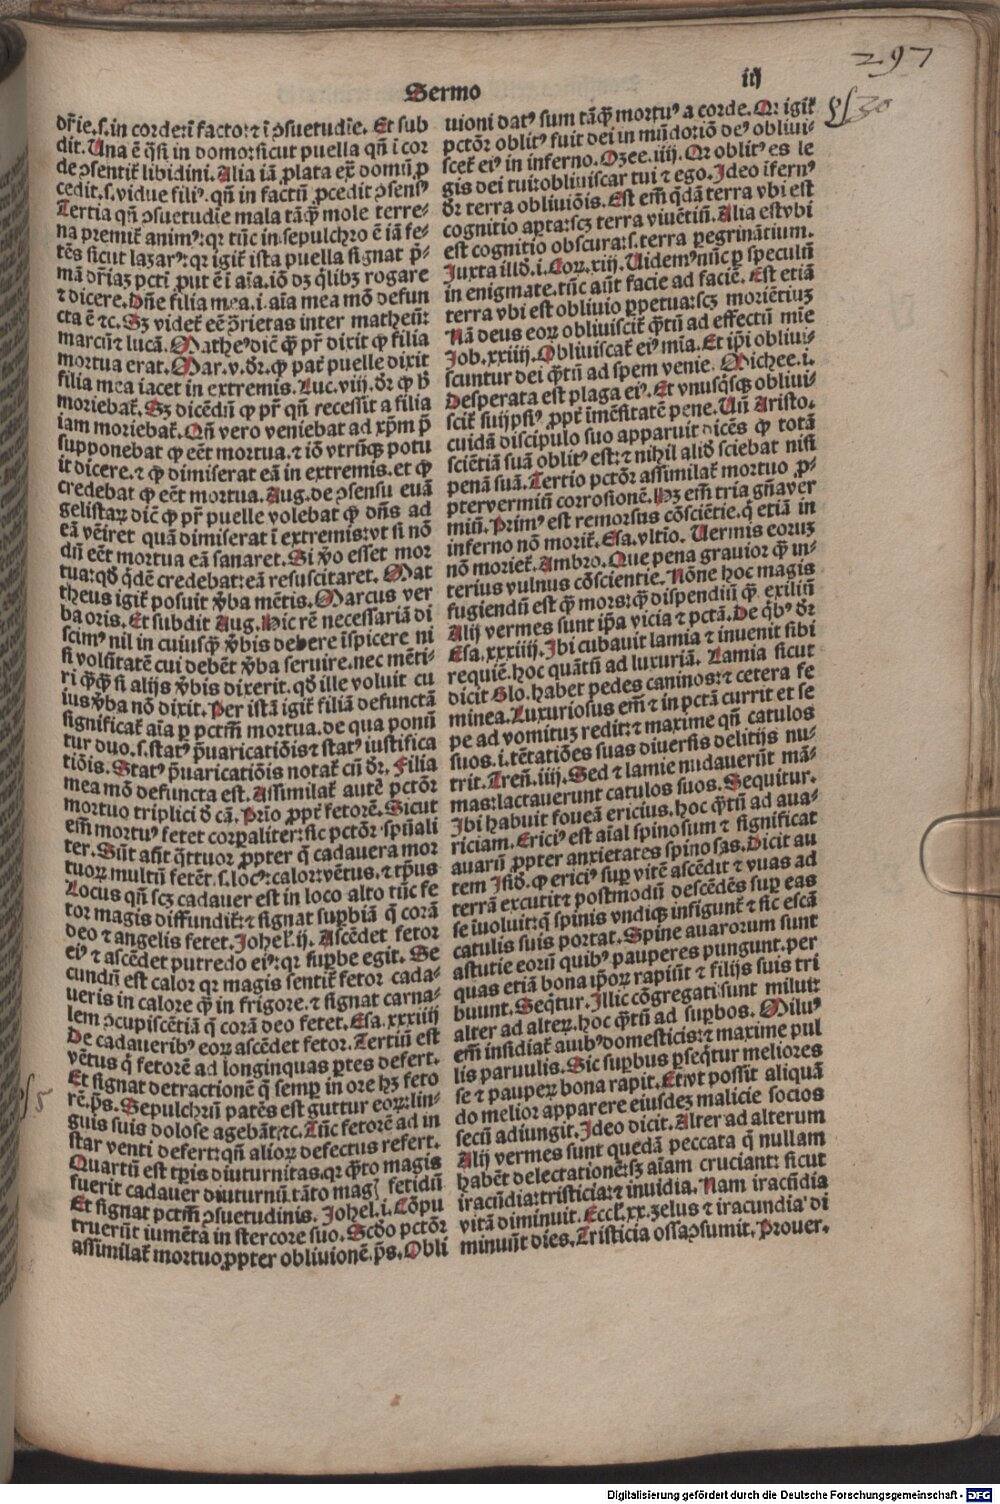 297
Sermo iij
ps 30
dr̄ie.s.in corde:ī facto:⁊ ī ↄsuetudīe. Et sub
dit. Una ē q̄si in domo:sicut puella qn̄ ī cor
de ↄsentit᷑ libidini. Alia iā ꝓlata ex̄ domū ꝓ
cedit.s.vidue filiꝰ.qn̄ in factū ꝓcedit ↄsensꝰ
Tertia qn̄ ↄsuetudīe mala tāꝙ̄ mole terre⸗
na premit᷑ animꝰ:qꝛ tūc in sepulchro ē iā fe⸗
tēs sicut lazarꝰ:qꝛ igit᷑ ista puella signat p̄⸗
mā dr̄iaꝫ pctī ꝓut ē ī aīa.iō dꝫ q̄libꝫ rogare
⁊ dicere.Dn̄e filia mea.i.aīa mea mō defun
cta ē ⁊c. Sꝫ videt᷑ eē ↄ̄rietas inter matheū:
marcū⁊ lucā. Matheꝰ dic̄ ꝙ pr̄ dixit ꝙ filia
mortua erat. Mar.v.dr̄.ꝙ pat᷑ puelle dixit
filia mea iacet in extremis. Luc.viij.dr̄ ꝙ ħ
moriebat᷑. Sꝫ dicēdū ꝙ pr̄ qn̄ recessit a filia
iam moriebat᷑. Qn̄ vero veniebat ad xp̄m p̄
supponebat ꝙ eēt mortua.⁊ iō vtrūqꝫ potu
it dicere.⁊ ꝙ dimiserat eā in extremis.et ꝙ
credebat ꝙ eēt mortua. Aug.de ↄsensu euā
gelistaꝝ dic̄ ꝙ pr̄ puelle volebat ꝙ dn̄s ad
eā vēiret quā dimiserat ī extremis:vt si nō
dū eēt mortua eā sanaret. Si v̄o esset mor
tua:qd̄ q̄dē credebat:eā resuscitaret. Mat
theus igit᷑ posuit v̄ba mētis. Marcus ver
ba oris. Et subdit Aug. Hic rē necessariā di
scimꝰ nil in cuiusꝙ̄ v̄bis debere īspicere ni
si volūtatē cui debēt v̄ba seruire.nec mēti⸗
ri ꝙ̄ꝙ̄ si alijs v̄bis dixerit.qd̄ ille voluit cu
ius v̄ba nō dixit. Per istā igit᷑ filiā defunctā
significat᷑ aīa ꝑ pctm̄ mortua.de qua ponū
tur duo.s.statꝰ p̄uaricatiōis⁊ statꝰ iustifica
tiōis. Statꝰ p̄uaricatiōis notat᷑ cū dr̄. Filia
mea mō defuncta est. Assimilat᷑ autē pctōr
mortuo triplici d̄ cā. Prīo ꝓpt᷑ fetorē. Sicut
em̄ mortuꝰ fetet corꝑaliter:sic pctōr spūali
ter. Sūt aūt q̄ttuor ꝓpter q̄ cadauera mor
tuoꝝ multū fetēt.s.locꝰ:calor:vētus.⁊ tp̄us
Locus qn̄ scꝫ cadauer est in loco alto tūc fe
tor magis diffundit᷑:⁊ signat suꝑbiā q̄ corā
deo ⁊ angelis fetet. Johel᷑.ij. Ascēdet fetor
eiꝰ ⁊ ascēdet putredo eiꝰ:qꝛ suꝑbe egit. Se
cundū est calor qꝛ magis sentit᷑ fetor cada⸗
ueris in calore ꝙ̄ in frigore.⁊ signat carna⸗
lem ↄcupiscētiā q̄ corā deo fetet. Esa.xxxiiij
De cadaueribꝰ eoꝝ ascēdet fetor. Tertiū est
vētus q̄ fetorē ad longinquas ꝑtes defert.
Et signat detractionē q̄ semꝑ in ore hꝫ feto
rē.p̄s. Sepulchrū patēs est guttur eoꝝ:lin⸗
guis suis dolose agebāt⁊c. Tūc fetorē ad in
star venti defert:qn̄ alioꝝ defectus refert.
Quartū est tp̄is diuturnitas.qꝛ q̄to magis
fuerit cadauer diuturnū tāto magꝭ fetidū
Et signat pctm̄ ↄsuetudinis. Johel.i. Cōpu
truerūt iumēta in stercore suo. Scd̄o pctōr
assimilat᷑ mortuo ꝓpter obliuionē.p̄s. Obli
ps 5
uioni datꝰ sum tāꝙ̄ mortuꝰ a corde. Qꝛ igit᷑
pctōr oblitꝰ fuit dei in mūdo:iō deꝰ obliui⸗
scet᷑ eiꝰ in inferno. Ozee.iiij. Qꝛ oblitꝰ es le
gis dei tui:obliuiscar tui ⁊ ego. Ideo ifernꝰ
dr̄ terra obliuiōis. Est em̄ q̄dā terra vbi est
cognitio aꝑta:scꝫ terra viuētiū. Alia est vbi
est cognitio obscura:s.terra ꝑegrinātium.
Juxta illd̄.i.Coꝝ.xiij. Uidemꝰ nūc ꝑ speculū
in enigmate.tūc aūt facie ad faciē. Est etiā
terra vbi est obliuio ꝑpetua:scꝫ moriētiuꝫ
Nā deus eoꝝ obliuiscit᷑ q̄tū ad effectū mīe
Job.xxiiij. Obliuiscat᷑ eiꝰ mīa. Et ip̄i obliui⸗
scuntur dei q̄tū ad spem venie. Michee.i.
Desperata est plaga eiꝰ. Et vnusq̄sqꝫ obliui⸗
scit᷑ suijpsiꝰ ꝓpt᷑ īmēsitatē pene. Un̄ Aristo.
cuidā discipulo suo apparuit dicēs ꝙ totā
sciētiā suā oblitꝰ est:⁊ nihil aliō sciebat nisi
penā suā. Tertio pctōr assimilat᷑ mortuo ꝓ⸗
pter vermiū corrosionē. Hꝫ em̄ tria gn̄a ver
miū. Primꝰ est remorsus cōsciētie.q̄ etiā in
inferno nō morit᷑. Esa.vltio. Uermis eoruꝫ
nō moriet᷑. Ambro. Que pena grauior ꝙ̄ in⸗
terius vulnus cōscientie. Nōne hoc magis
fugiendū est ꝙ̄ mors:ꝙ̄ dispendiū ꝙ̄ exiliū
Alij vermes sunt ip̄a vicia ⁊ pctā. De q̄bꝰ dr̄
Esa.xxxiiij. Ibi cubauit lamia ⁊ inuenit sibi
requiē.hoc quātū ad luxuriā. Lamia sicut
dicit Glo.habet pedes caninos:⁊ cetera fe
minea. Luxuriosus em̄ ⁊ in pctā currit et se
pe ad vomituꝫ redit:⁊ maxime qn̄ catulos
suos.i.tētatiōes suas diuersis delitijs nu⸗
trit. Tren̄.iiij. Sed ⁊ lamie nudauerūt mā⸗
mas:lactauerunt catulos suos. Sequitur.
Ibi habuit foueā ericius.hoc q̄tū ad aua⸗
riciam. Ericiꝰ est aīal spinosum ⁊ significat
auarū ꝓpter anxietates spinosas. Dicit au
tem Isid̄.ꝙ ericiꝰ suꝑ vitē ascēdit ⁊ vuas ad
terrā excutit⁊ postmodū descēdēs suꝑ eas
se īuoluit:q̄ spinis vndiqꝫ infigunt᷑ ⁊ sic escā
catulis suis portat. Spine auarorum sunt
astutie eorū quibꝰ pauperes pungunt.per
quas etiā bona ip̄oꝝ rapiūt ⁊ filijs suis tri
buunt. Seq̄tur. Illic cōgregati sunt milui:
alter ad alteꝝ.hoc q̄tū ad suꝑbos. Miluꝰ
em̄ insidiat᷑ auibꝰ domesticis:⁊ maxime pul
lis paruulis. Sic suꝑbus ꝑseq̄tur meliores
se ⁊ pauperꝝ bona rapit. Et vt possit aliquā
do melior apparere eiusdeꝫ malicie socios
secū adiungit. Ideo dicit. Alter ad alterum
Alij vermes sunt quedā peccata q̄ nullam
habēt delectationē:sꝫ aīam cruciant: sicut
iracūdia:tristicia:⁊ inuidia. Nam iracūdia
vitā diminuit. Eccl᷑.xx.zelus ⁊ iracundia di
minuūt dies. Tristicia ossa ↄsumit. Prouer.
Digitalisierung gefördert durch die Deutsche Forschungsgemeinschaft - DFG